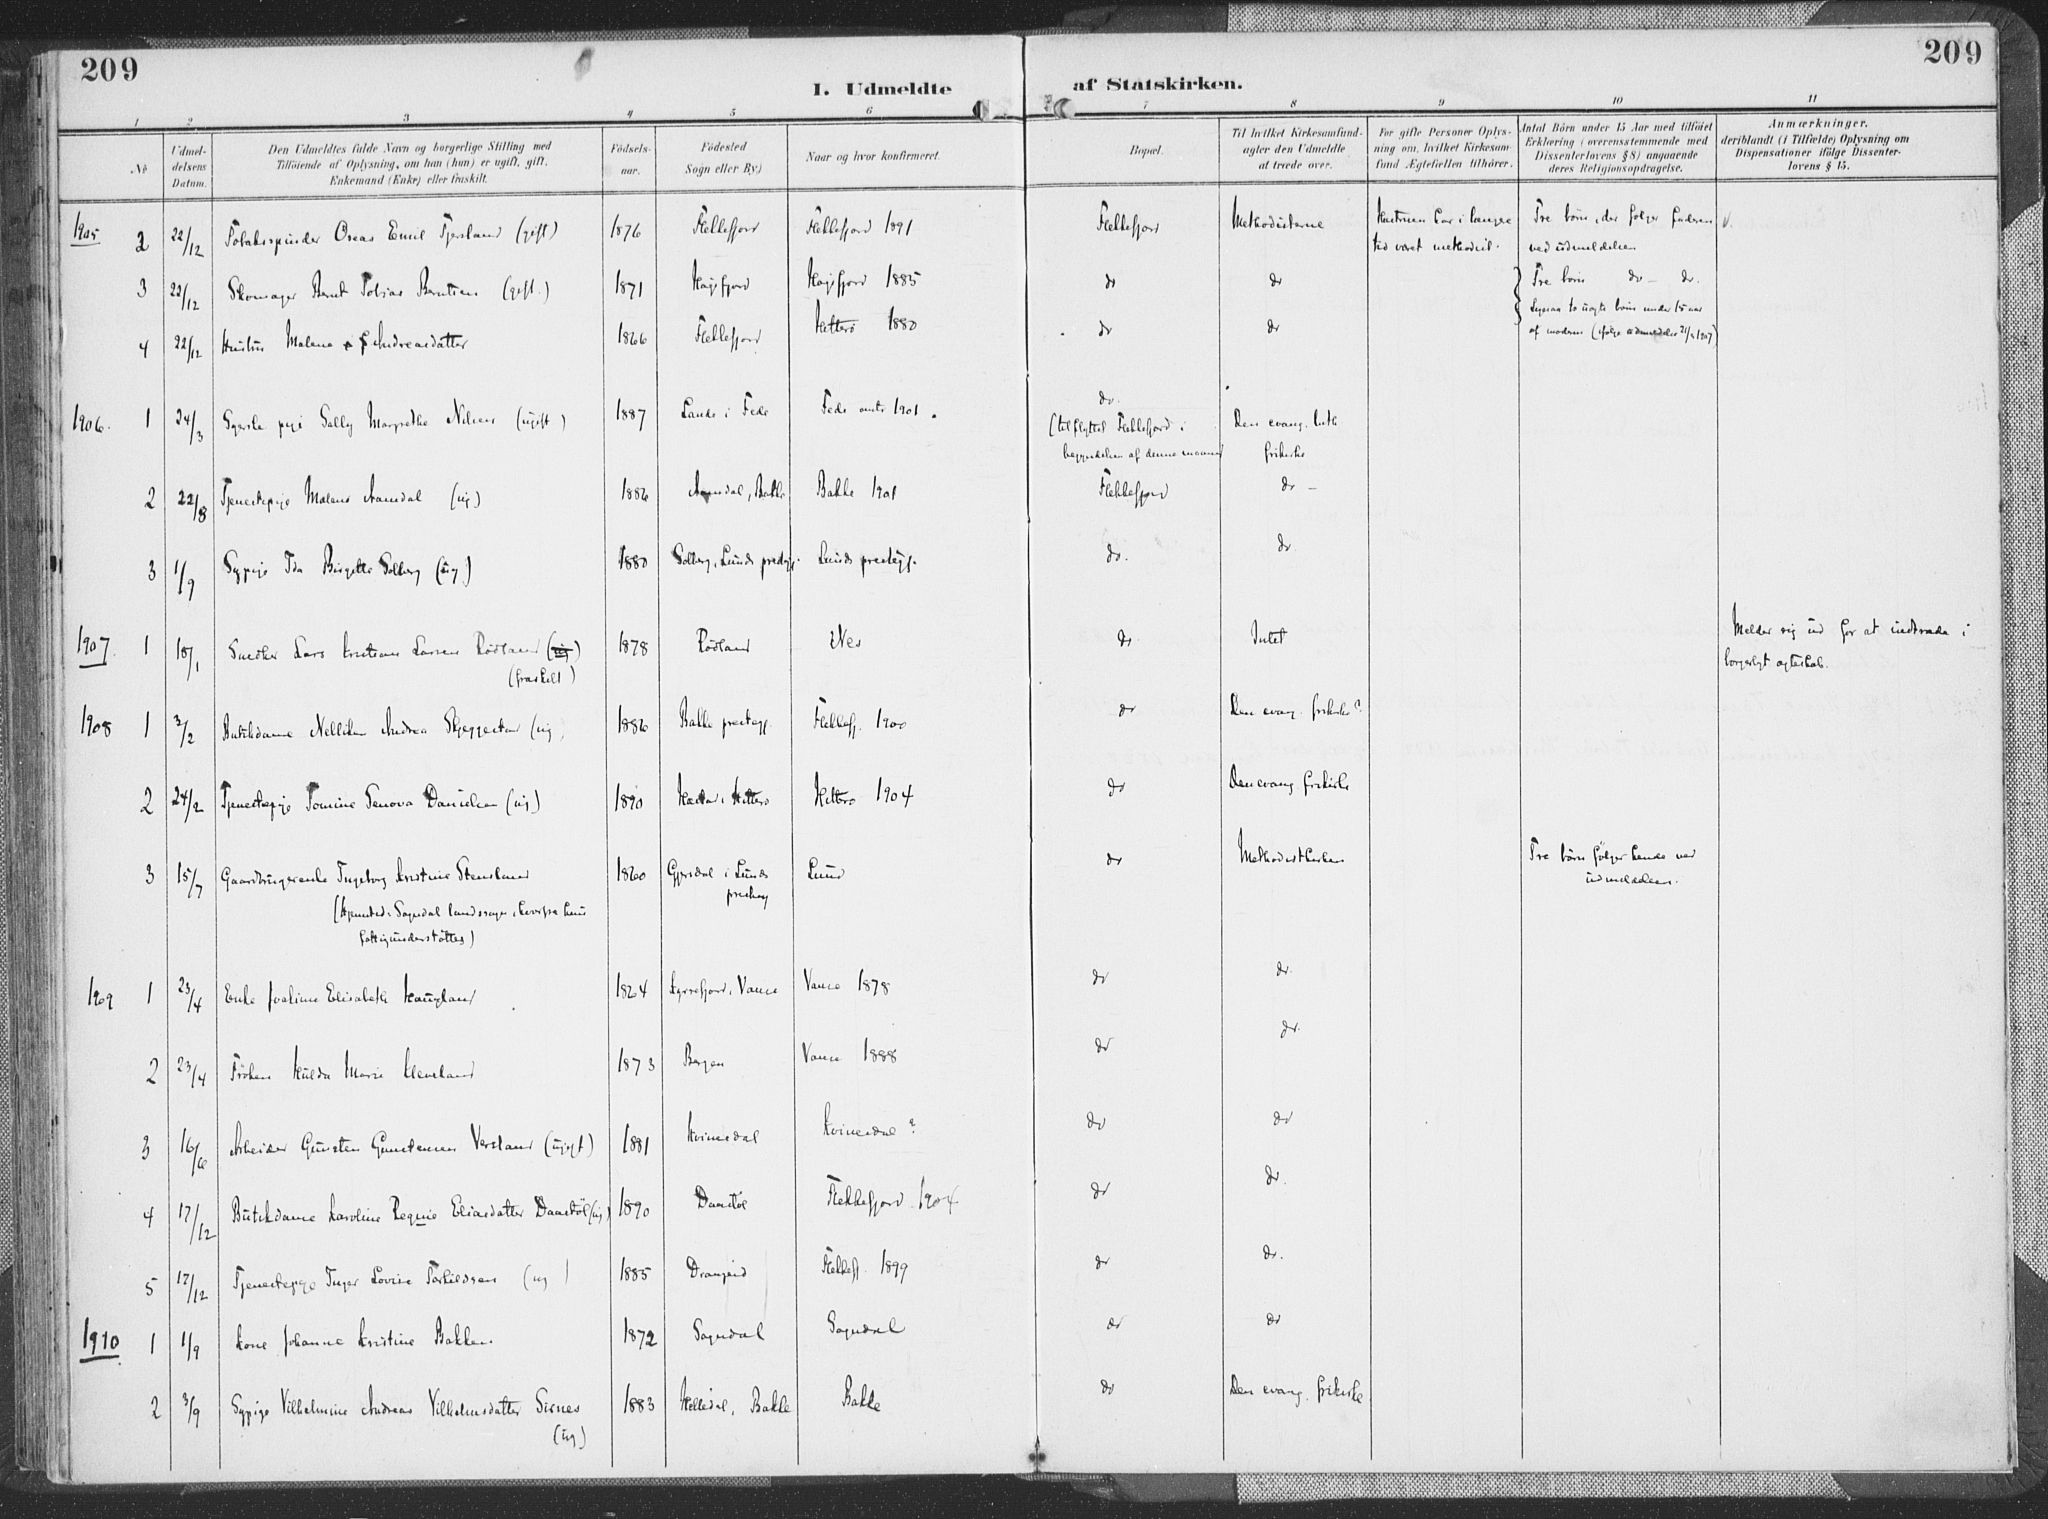 209
209
I. Udmeldte af Statskirken.
1 2 3 4 5 6 7 8 9 10 11
No
Udmeldelsens Datum.
Den Udmeldtes fulde Navn og borgerlige Stilling med
Tilföiende af Oplysning, om han (hun) er ugift, gift.
Enkemand (Enke) eller fraskilt.
Födselsaar.
Födested
Sogn eller By.)
Naar og hvor konfirmeret.
Bopæl.
Til hvilket Kirkesamfund
agter den Udmeldte
at træde over.
For gifte Personer Oplysning
om, hvilket Kirkesamfund
Ægtefællen tilhörer.
Antal Börn under 15 Aar med tilföiet
Erklæring (overensstemmende med
Dissenterlovens § 8) angaaende
deres Religionsopdragelse.
Anmærkninger.
deriblandt (i Tilfælde) Oplysning om
Dispensationer ifölge Dissenterlovens § 15.
1905 2 22/12 Tobakspinder Oreas Emil Fjersland (gift) 1876 Flekkefjord Flekkefjord 1891 Flekkefjord Methodisterne Hustruen har i længre Tre børn, der følger faderen
tid været methodist. ved udmeldelsen
3 22/12 Skomager Bernt Tobias Berntsen (gift.) 1871 Høgsfjord Høgsfjord 1885 do do Tre børn do — do.
4 22/12 Hustru Malene Andreasdatter 1866 Flekkefjord Hitterø 1880 do do
ligesaa to uægte børn under 15 aar
af moderen
1906. 1 24/3 pige Selly Margrethe Nilsen (ugift) 1887 Lande i Feda Feda 1901. do.
(tilflyttet Flekkefjord i Den evang. luth.
begyndelsen af denne maaned frikirke
2 22/8 Tjenestepige Malene Aamdal (ug) 1886 Aamdal, Bakke Bakke 1901 Flekkefjord do —
3 1/9 Sypige Ida Birgitte Solberg (ug.) 1880 Solberg, Lunds prestegj. Lunds prestegj. do. do.
1907. 1 18/1 Snedker Lars Kristian Larsen Rødland (ug) 1878 Rødland Nes do. Intet Melder sig ud for at indtræde i
(fraskilt) borgerligt ægteskab.
1908 1 3/2 Butikdame Nellike Andrea Skjeggestad (ug) 1886 Bakke prestegj. Flekkefj. 1900 do Den evang. frikirke?
2 24/2 Tjenestepige Tomine Tenova Danielsen (ug) 1890 i Hitterø Hitterø 1904 do Den evang. frikirke
3 15/7 Gaardbrugerenke Ingeborg Kristine Stensland 1860 Gjersdal i Lunds Lund do Methodistkirken Tre børn følger hende ved
prestegj udmeldelsen.
(hjemsted: Sogndal landssogn, hvorfra hun
fattigunderstøttes)
1909 1 23/4 Enke Joakime Elisabeth Haugland 1864 Kjørrefjord, Vanse Vanse 1878 do do.
2 23/4 Frøken Hulda Marie Kleveland 1873 Bergen Vanse 1888 do do.
3 16/6 Arbeider Gunsten Gunstensen Versland (ugift) 1881 Kvinesdal Kvinesdal? do do
4 17/12 Butikdame Karoline Regine Eliasdatter Daastøl (ug) 1890 Daastøl Flekkefjord. 1904 do do.
5 17/12 Tjenestepige Inger Lovise Torkildsen (ug) 1885 Drangeid Flekkefj. 1899 do do.
1910 1 1/9 Kone Johanne Kristine Bakken 1872 Sogndal Sogndal do do
2 3/9 Sypige Vilhelmine Andrea Vilhelmsdatter Sirnes 1883 Helledal, Bakke Bakke do Den evang. frikirke
(ug)